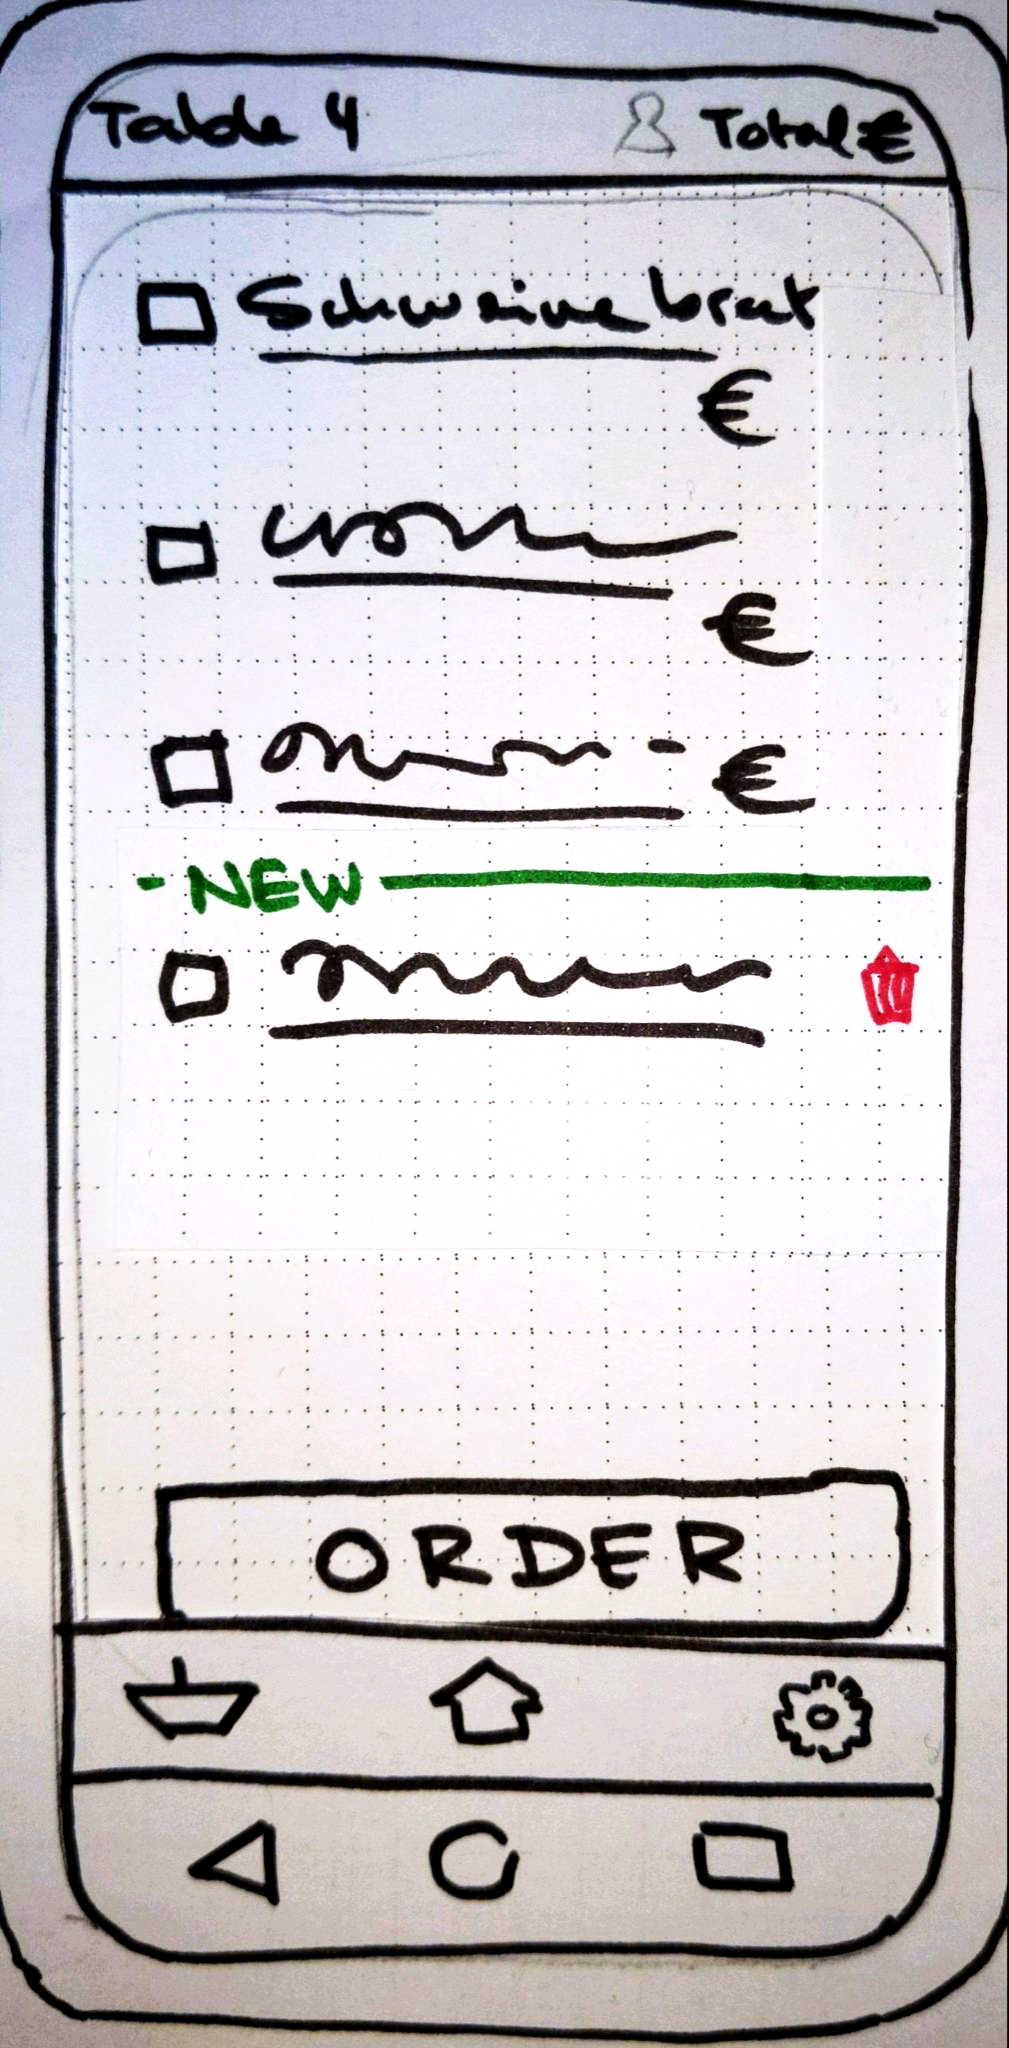 Table 4
Total €
Schweinebrat
€
€
€
- NEW
ORDER